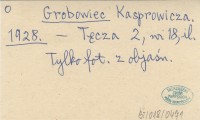 O
Grobowiec Kasprowicza.
1928. — Tęcza 2, nr 18, il.
Tylko fot. z objaśn.